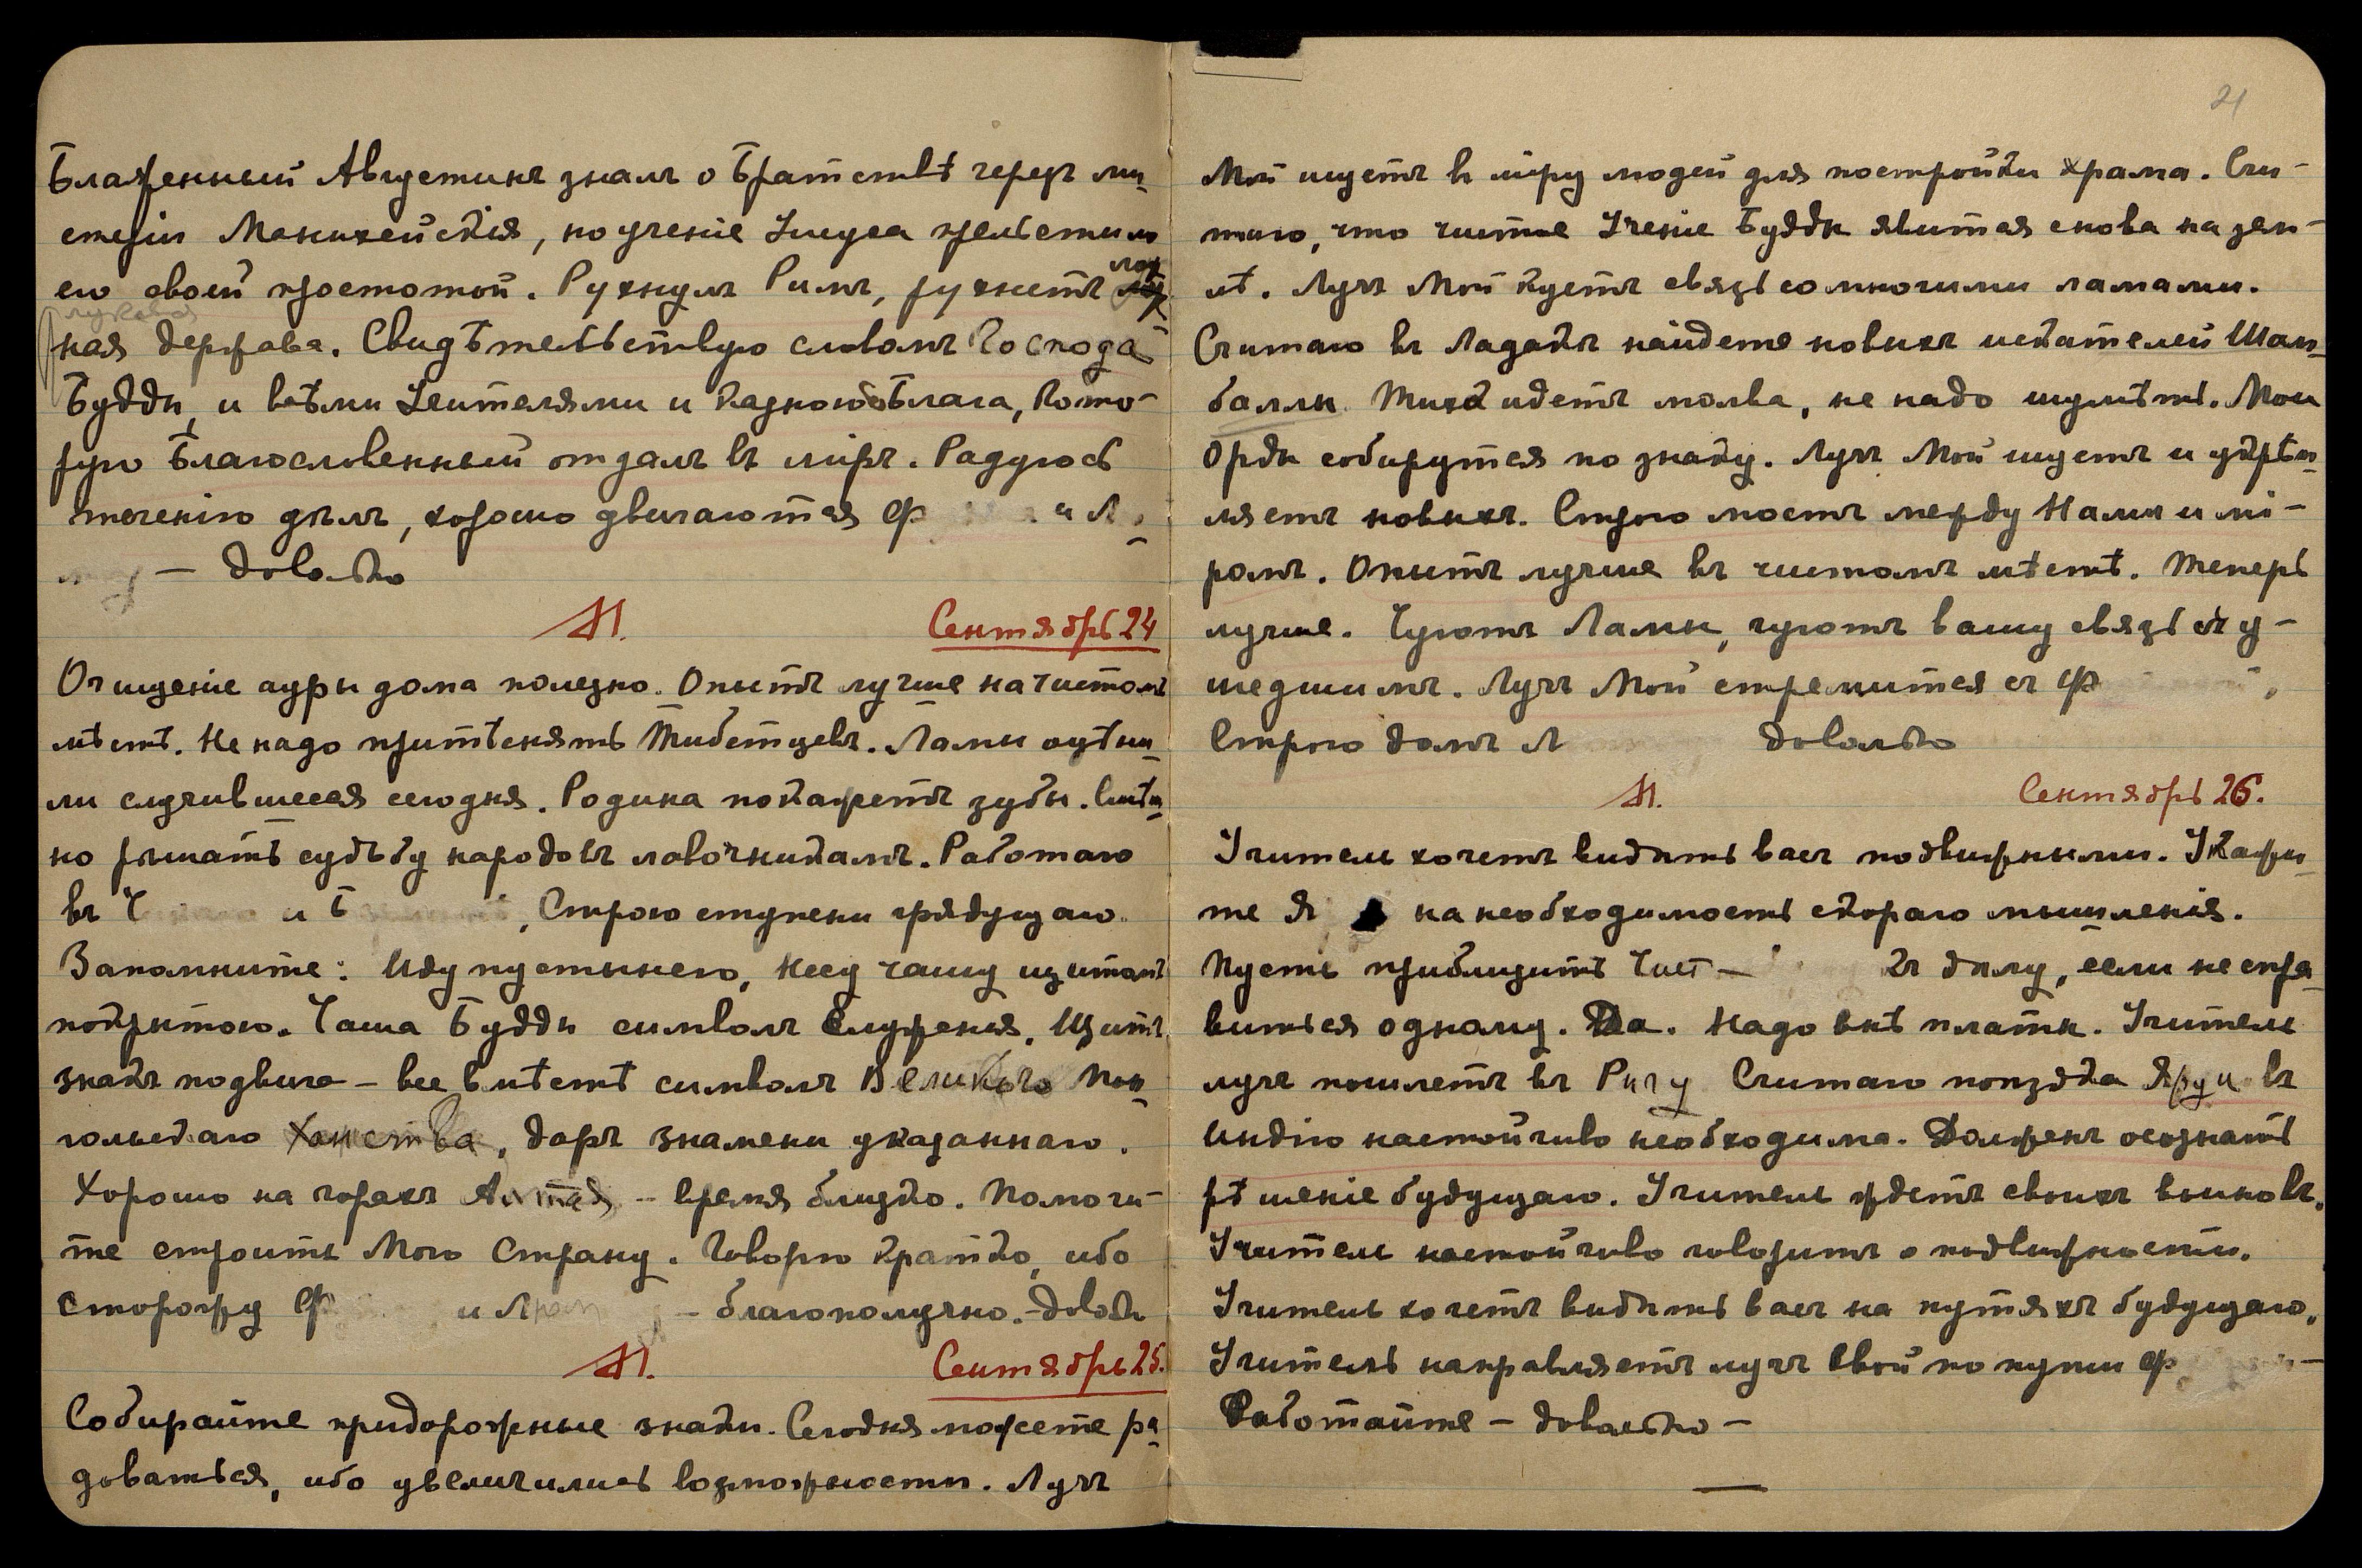 Блаженный Августинъ зналъ о Братствѣ черезъ ми-
стеріи Манихейскія, но ученіе Іисуса прельстило
его своей простотой. Рухнулъ Римъ, рухнетъ
ная держава. Свидѣтельствую словомъ Господа
Будды, и всѣми Учителями и Казною Блага, кото-
рую Благословенный отдалъ въ міръ. Радуюсь
теченію дѣлъ, хорошо двигаются Ф и Л
— довольно
М. Сентябрь 24
Очищеніе ауры дома полезно. Опытъ лучше на чистомъ
мѣстѣ. Не надо притѣснять Тибетцевъ. Ламы оцѣни-
ли случившееся сегодня. Родина покажетъ зубы. Смѣш-
но рѣшать судьбу народовъ лавочникамъ. Работаю
въ и Б , Строю ступени грядущаго.
Запомните: Иду пустынею, несу чашу щитомъ
покрытою. Чаша Будды символъ Служенія. Щитъ
знакъ подвига – все вмѣстѣ символъ Великого Мон-
гольскаго Ханства, даръ знамени указаннаго.
Хорошо на горахъ Алтая – время близко. Помоги-
те строить Мою Страну. Говорю кратко, ибо
сторожу Ф и – благополучно. – довольно
М. Сентябрь 25.
Собирайте придорожные знаки. Сегодня можете ра-
доваться, ибо увеличились возможности. Лучъ
21
Мой ищетъ въ міру людей для постройки храма. Счи-
таю, что чистое Ученіе Будды явится снова на зем-
лѣ. Лучъ Мой куетъ связь со многими ламами.
Считаю въ Ладакѣ найдете новыхъ искателей Шам-
баллы. Тихо идетъ молва, не надо шумѣть. Мои
Орды соберутся по знаку. Лучъ Мой ищетъ и укрѣп-
ляетъ новыхъ. Строю мостъ между Нами и мі-
ромъ. Опытъ лучше въ чистомъ мѣстѣ. Теперь
лучше. Чуютъ Ламы, чуютъ вашу связь съ у-
шедшимъ. Лучъ Мой стремится съ Ф
Строю домъ Л довольно
М. Сентябрь 26.
Учитель хочетъ видѣть васъ подвижными. Укажи-
те Я на необходимость скораго мышленія.
Пусть приблизитъ Чист – къ дѣлу, если не спра-
виться одному. Да. Надо внѣ платы. Учитель
лучъ пошлетъ въ Ригу Считаю поѣздка Яруи въ
Индію настойчиво необходима. Долженъ осознать
рѣшеніе будущаго. Учитель ждетъ своихъ воиновъ.
Учитель настойчиво говоритъ о подвижности.
Учитель хочетъ видѣть васъ на путяхъ будущаго.
Учитель направляетъ лучъ Свой по пути Ф –
Работайте – довольно –